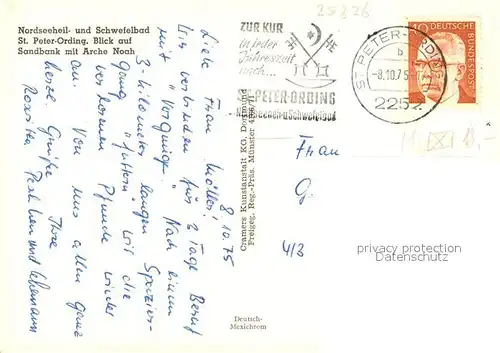 Nordseeheil- und Schwefelbad
St. Peter-Ording. Blick auf
Sandbank mit Arche Noah
8.10.75
Liebe Frau Möller!
Wir verbinden für 2 Tage Beruf
mit "Vergnügen". Nach einem
3-kilometer langen Spazier-
gang "futtern" wir die
verlorenen Pfunde wieder
an. Von uns allen ganz
herzl. Grüße Ihre
und Ehemann
Cramers Kunstanstalt KG. Dortmund
Freigeg. Reg.-Präs. Münster
Deutsch-
Mexichrom
25326
ZUR KUR
in jeder
Jahreszeit
nach...
ST. PETER-ORDING
Nordseeheil- u. Schwefelbad
ST PETER-ORDING
b
-8.10.75
2252
40 DEUTSCHE
BUNDESPOST
Frau
G.
4/3
privacy protection
Datenschutz